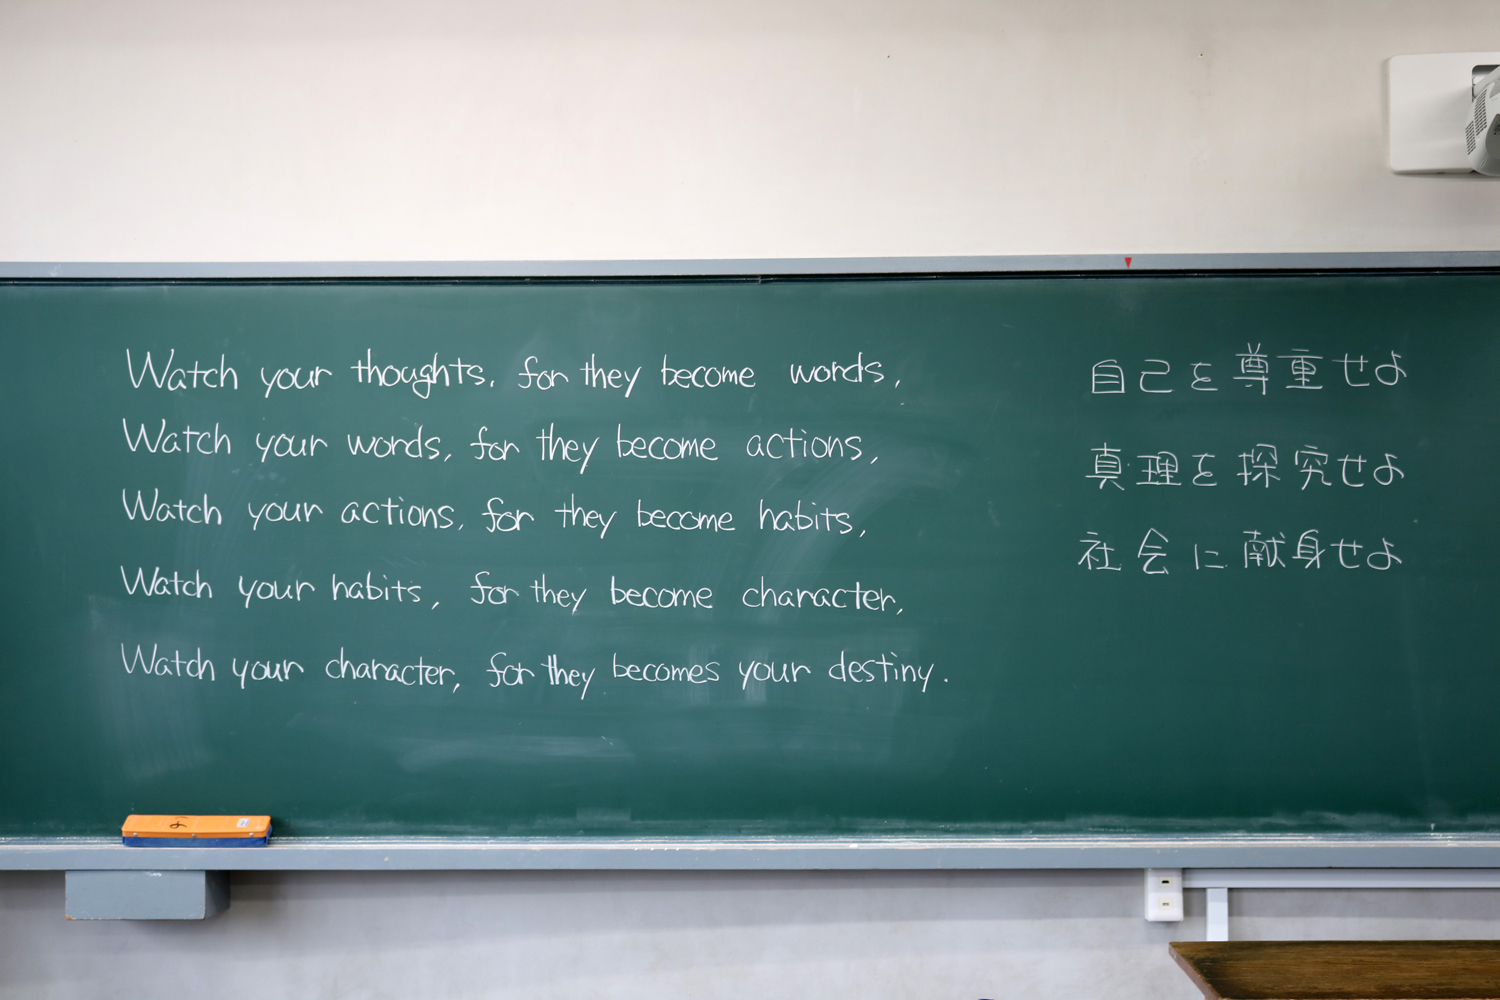 Watch your thoughts, for they become words,
Watch your words, for they become actions,
Watch your actions, for they become habits,
Watch your habits, for they become character,
Watch your character, for they becomes your destiny.
自己を尊重せよ
真理を探究せよ
社会に献身せよ